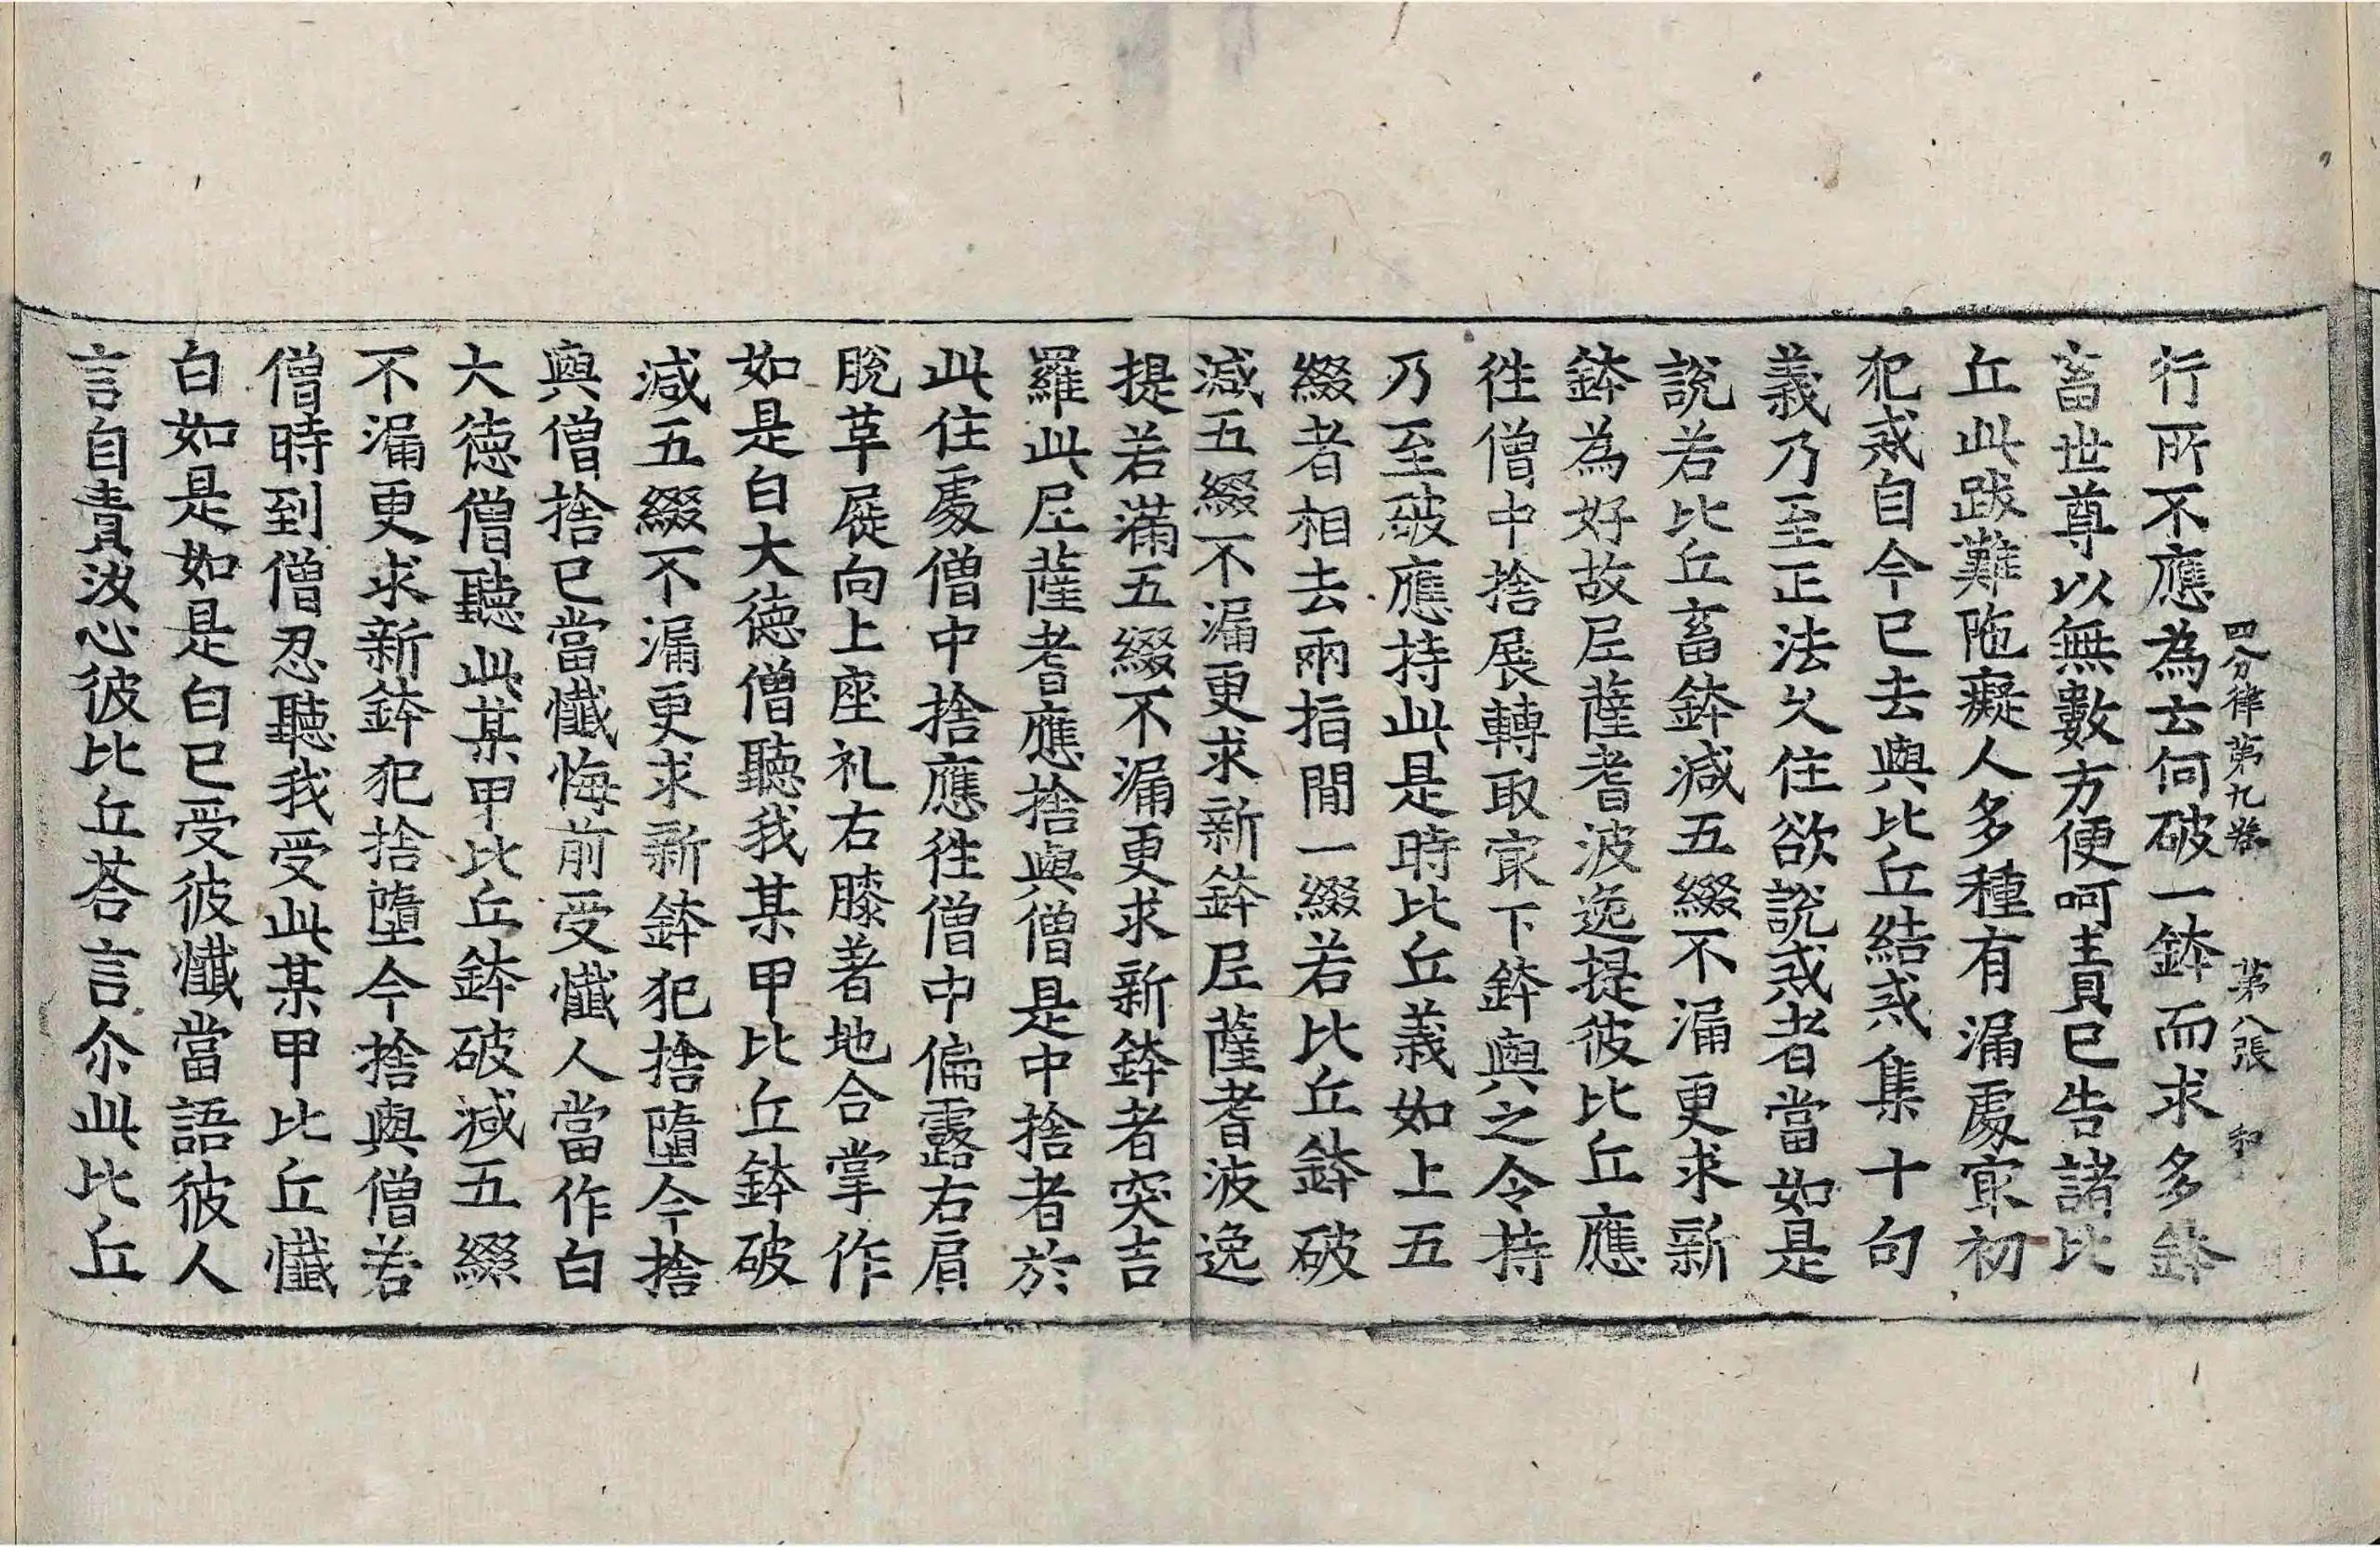 四分律第九卷 第八張 和
行所不應為云何破一鉢而求多鉢
畜世尊以無數方便呵責已告諸比
丘此跋難陁癡人多種有漏處㝡初
犯戒自今已去與比丘結戒集十句
義乃至正法久住欲說戒者當如是
說若比丘畜鉢減五綴不漏更求新
鉢為好故尼薩耆波逸提彼比丘應
往僧中捨展轉取㝡下鉢與之令持
乃至破應持此是時比丘義如上五
綴者相去兩指間一綴若比丘鉢破
減五綴不漏更求新鉢尼薩耆波逸
提若滿五綴不漏更求新鉢者突吉
羅此尼薩耆應捨與僧是中捨者於
此住處僧中捨應往僧中偏露右肩
脫革屣向上座礼右膝著地合掌作
如是白大德僧聽我某甲比丘鉢破
減五綴不漏更求新鉢犯捨墮今捨
與僧捨已當懺悔前受懺人當作白
大德僧聽此某甲比丘鉢破減五綴
不漏更求新鉢犯捨墮今捨與僧若
僧時到僧忍聽我受此某甲比丘懺
白如是如是白已受彼懺當語彼人
言自責汝心彼比丘荅言尒此比丘